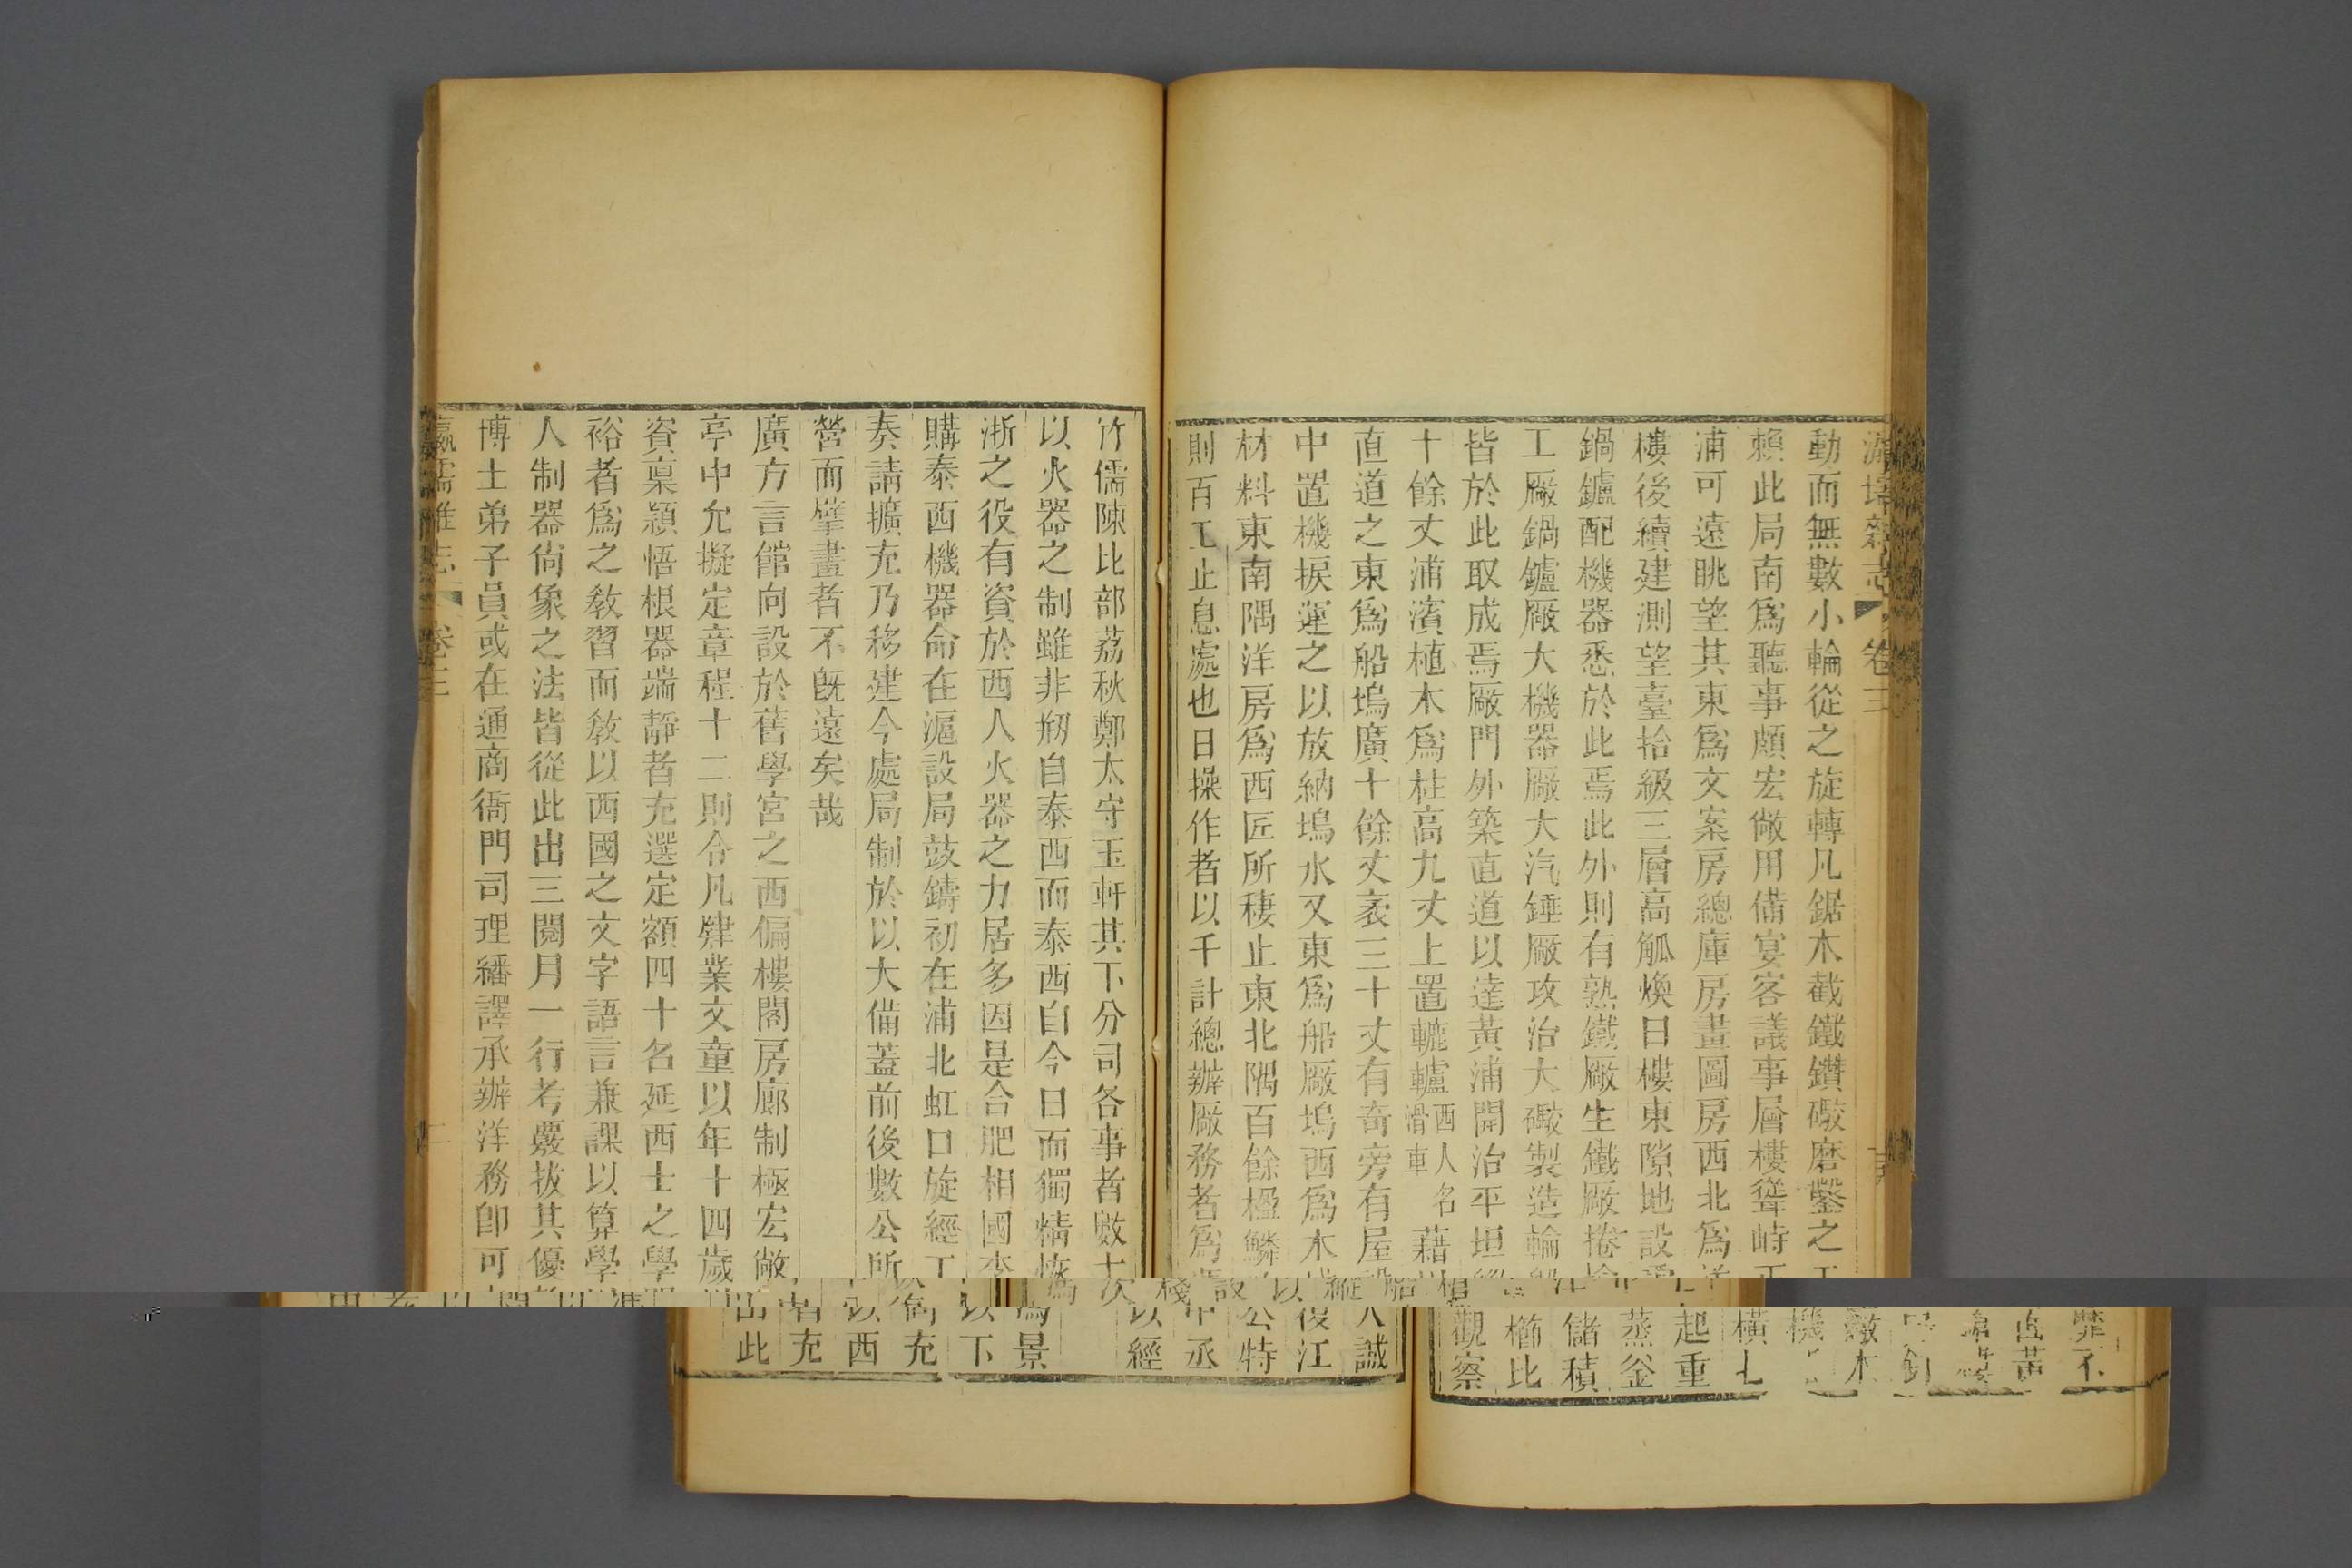 瀛壖雜志 卷三
動而無數小輪從之旋轉凡鋸木截鐵鑽礮磨鑿之工
賴此局南爲聽事頗宏敞用備宴客議事層樓聳峙
浦可遠眺望其東爲文案房總庫房畫圖房西北爲洋
樓後續建測望臺拾級三層高觚煥日樓東隙地設
鍋鑪配機器悉於此焉此外則有熟鐵廠生鐵廠捲
工廠鍋鑪廠大機器廠大汽錘廠攻治大礮製造輪船
皆於此取成焉廠門外築直道以達黃浦開治平垣
十餘丈浦濱植木爲柱高九丈上置轆轤西人名滑車藉
直道之東爲船塢廣十餘丈袤三十丈有奇旁有屋
中置機捩運之以放納塢水又東爲船廠塢西爲木
材料東南隅洋房爲西匠所棲止東北隅百餘楹鱗
則百工止息處也日操作者以千計總辦廠務者爲
竹儒陳比部荔秋鄭太守玉軒其下分司各事者數十
以火器之制雖非剏自泰西而泰西自今日而獨精
浙之役有資於西人火器之力居多因是合肥相國李
購泰西機器命在滬設局鼓鑄初在浦北虹口旋經丁
奏請擴充乃移建今處局制於以大備蓋前後數公所
營而擘畫者不旣遠矣哉
廣方言館向設於舊學宮之西偏樓閣房廊制極宏敞
亭中允擬定章程十二則合凡肄業文童以年十四歲
資稟穎悟根器端靜者充選定額四十名延西士之學
裕者爲之敎習而敎以西國之文字語言兼課以算學
人制器尙象之法皆從此出三閱月一行考覈拔其優
博士弟子員或在通商衙門司理繙譯承辦洋務卽可
瀛壖雜志 卷三 二
不
木
橫七
起重
蒸釜
儲積
櫛比
觀察
人誠
後江
公特
中丞
以經
爲景
以下
充
以西
者充
出此